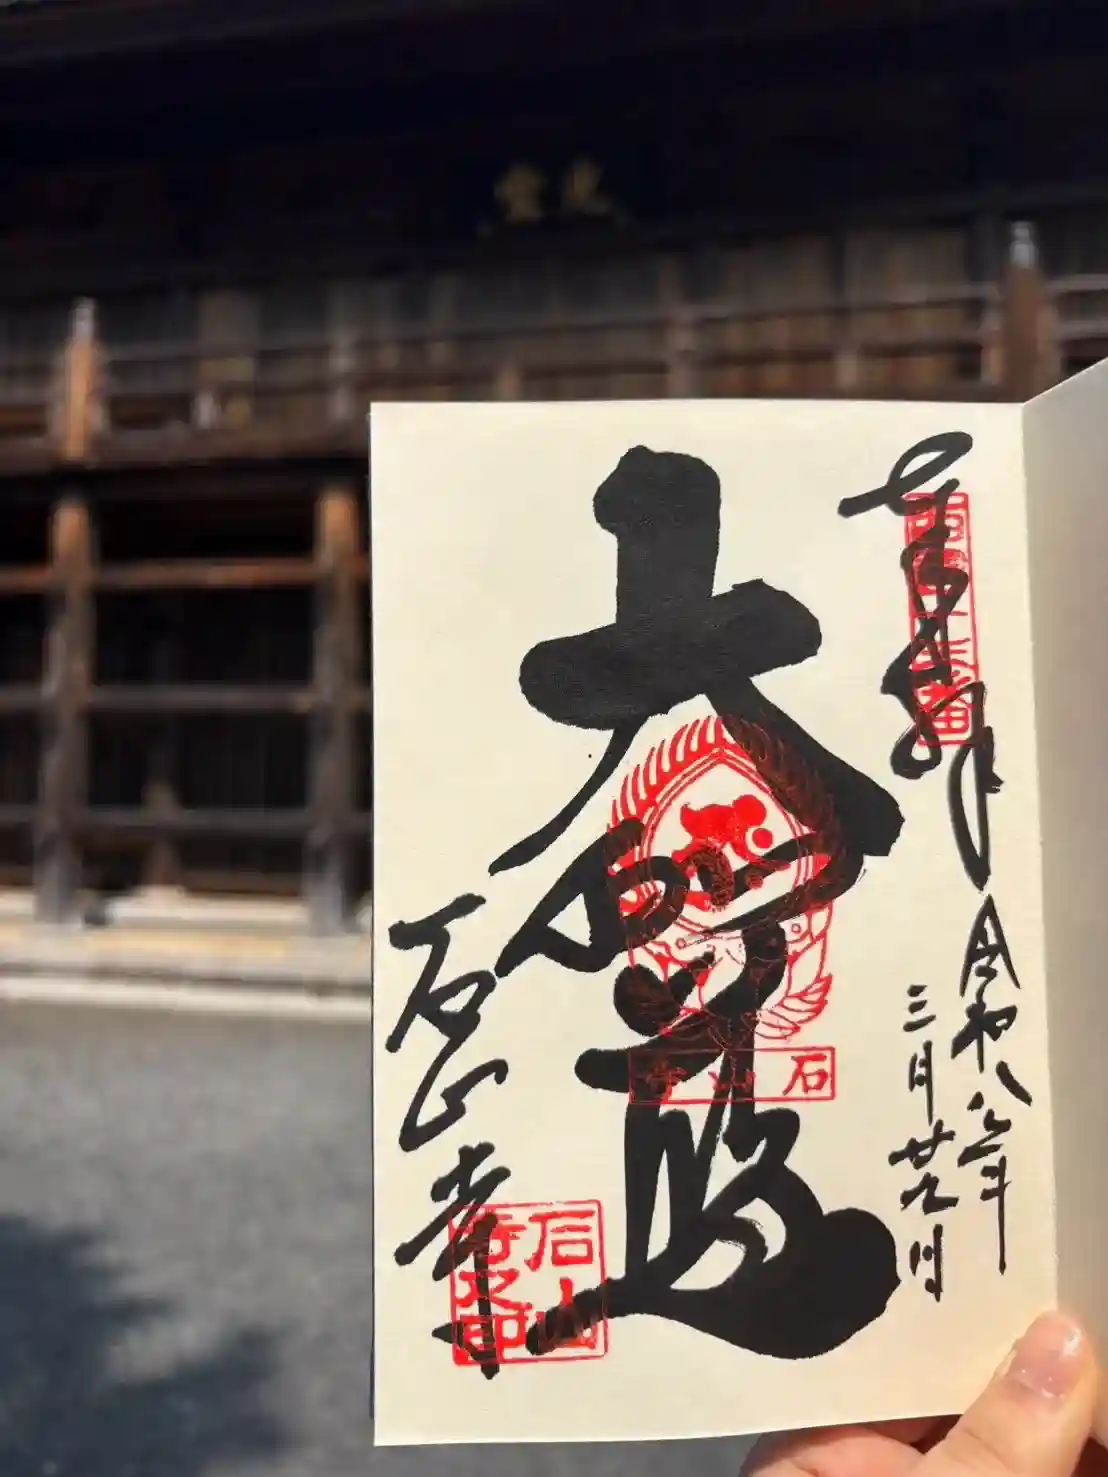 奉拝
西国十三番
令和八年
三月廿九日
大伽藍
石山寺
石山寺
石山寺之印